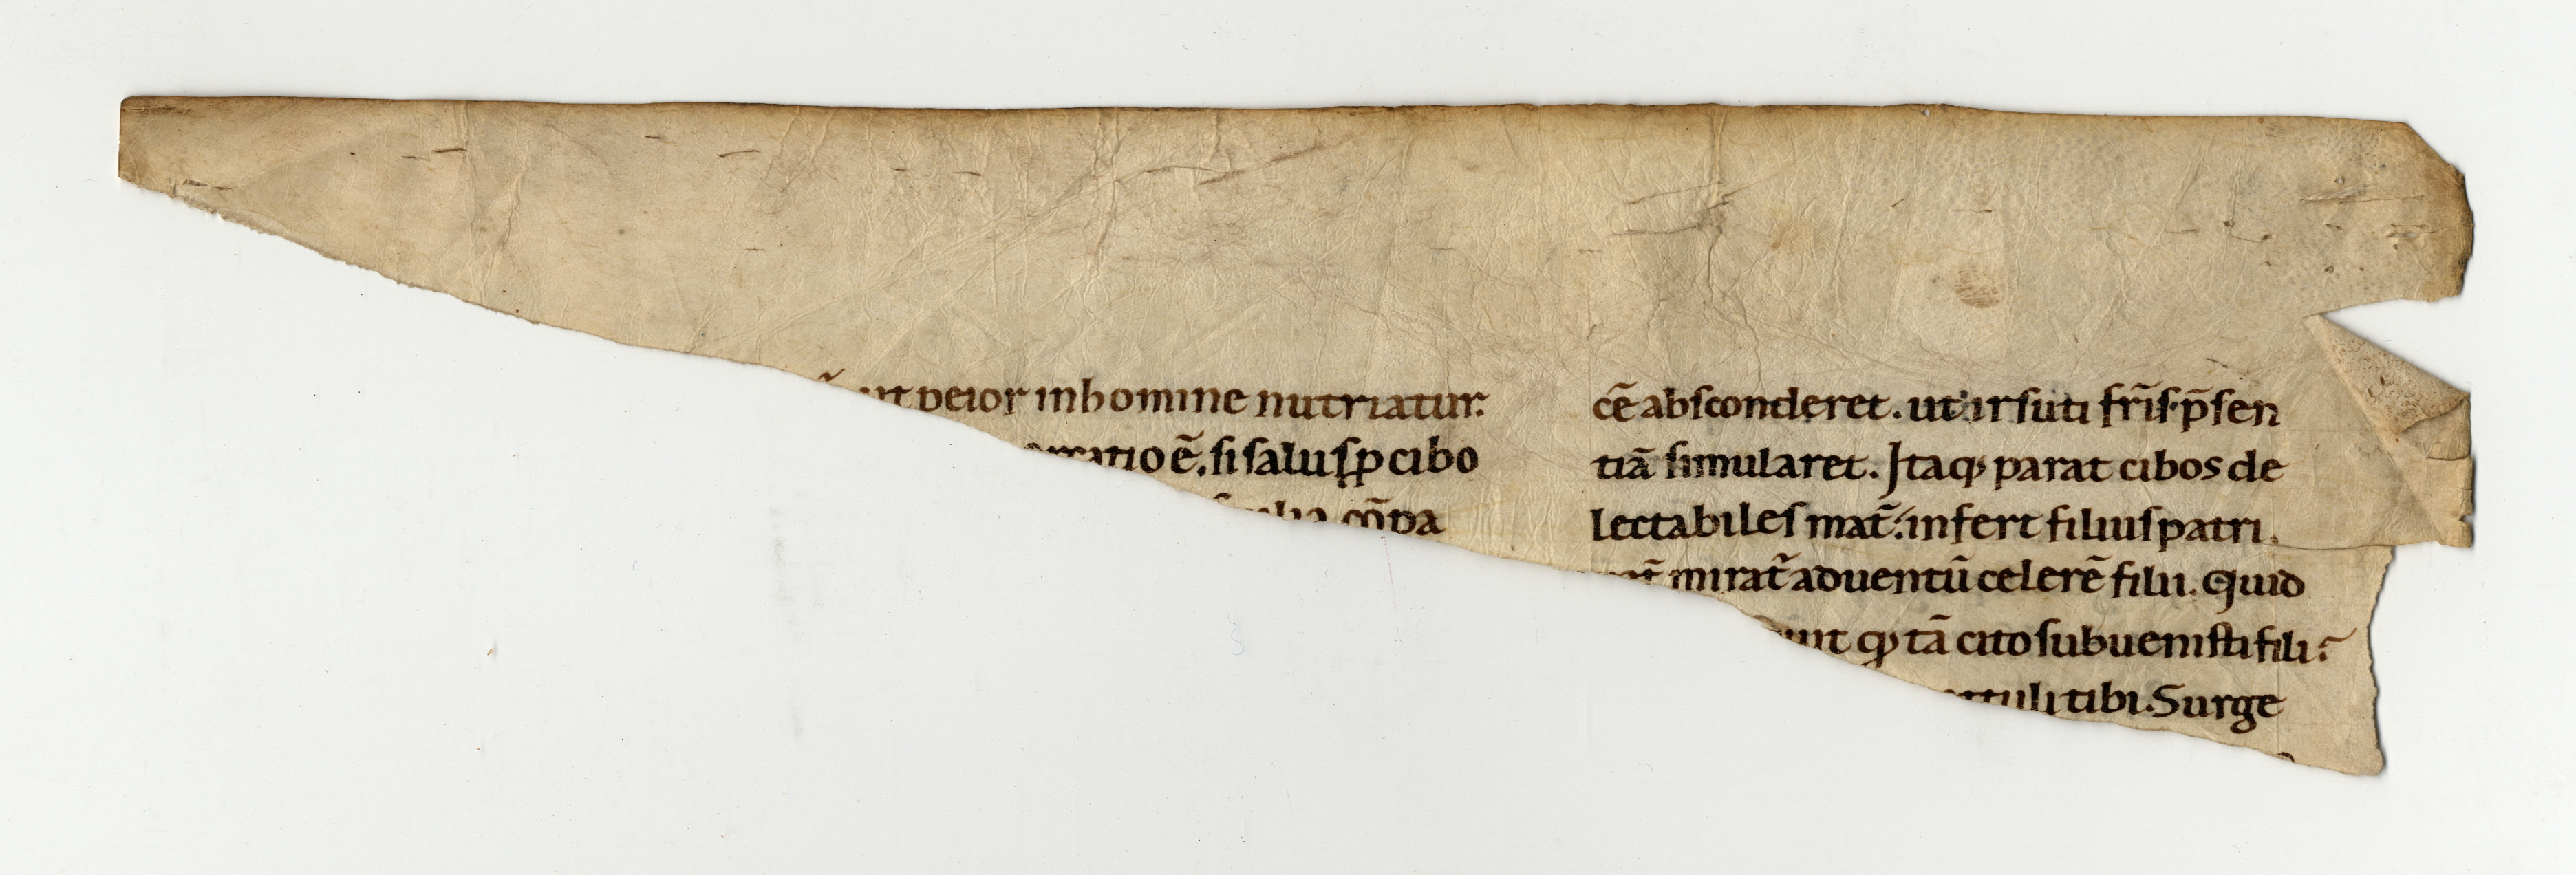 ut peior inhomine nutriatur:
ratio ē. si salus ꝑ cibo
cōpa
cē absconderet. ut irsuti fr̄is p̄sen
tiā simularet. Itaq; parat cibos de
lectabiles mat̄: infert filius patri.
mirat̄ aduentū celerē filii. Quid
inꝗt ꝙ tā cito subuenisti fili?
attuli tibi. Surge